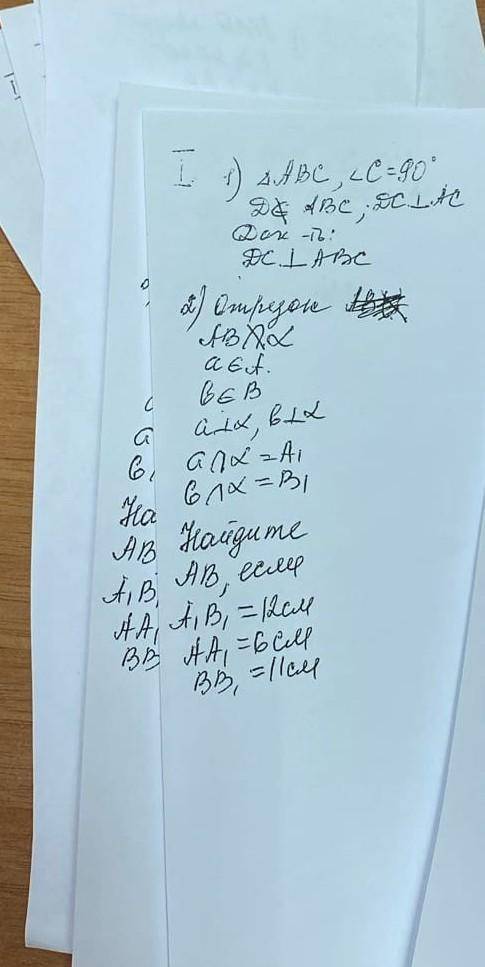 I 1) △ABC, ∠C=90°
ABC, DC⊥AC
Док-ть:
DC⊥ABC
2) Отрезок
AB∩α
a∈A.
b∈B
a⊥α, b⊥α
a∩α=A₁
b∩α=B₁
Найдите
AB, если
A₁B₁=12см
AA₁=6см
BB₁=11см
a
b
На
AB
A₁B₁
AA₁
BB